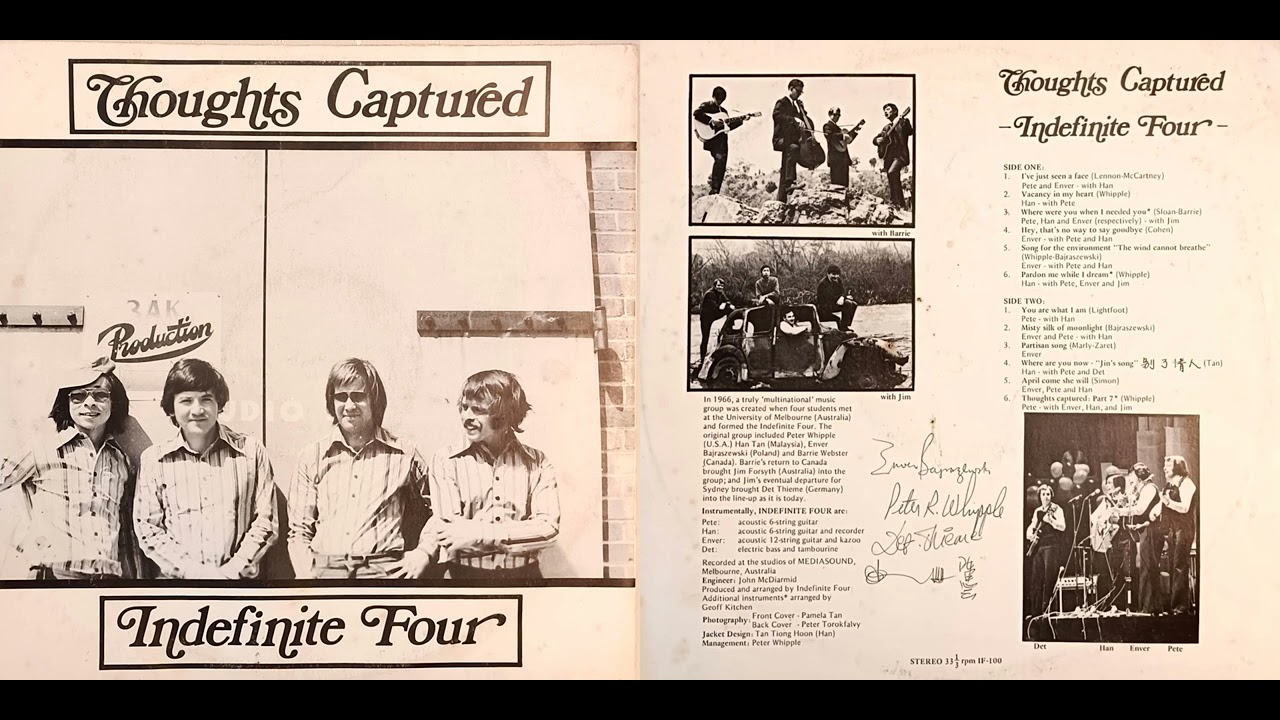 Thoughts Captured
3AK
Production
STUDIO
Indefinite Four
with Barrie
with Jim
In 1966, a truly 'multinational' music
group was created when four students met
at the University of Melbourne (Australia)
and formed the Indefinite Four. The
original group included Peter Whipple
(U.S.A.) Han Tan (Malaysia), Enver
Bajraszewski (Poland) and Barrie Webster
(Canada). Barrie's return to Canada
brought Jim Forsyth (Australia) into the
group; and Jim's eventual departure for
Sydney brought Det Thieme (Germany)
into the line-up as it is today.
Instrumentally, INDEFINITE FOUR are:
Pete: acoustic 6-string guitar
Han: acoustic 6-string guitar and recorder
Enver: acoustic 12-string guitar and kazoo
Det: electric bass and tambourine
Recorded at the studios of MEDIASOUND,
Melbourne, Australia
Engineer: John McDiarmid
Produced and arranged by Indefinite Four
Additional instruments* arranged by
Geoff Kitchen
Photography: Front Cover - Pamela Tan
Back Cover - Peter Torokfalvy
Jacket Design: Tan Tiong Hoon (Han)
Management: Peter Whipple
Enver Bajraszewski
Peter R. Whipple
Det. Thieme
STEREO 33 1/3 rpm IF-100
Thoughts Captured
-Indefinite Four-
SIDE ONE:
1. I've just seen a face (Lennon-McCartney)
Pete and Enver - with Han
2. Vacancy in my heart (Whipple)
Han - with Pete
3. Where were you when I needed you* (Sloan-Barrie)
Pete, Han and Enver (respectively) - with Jim
4. Hey, that's no way to say goodbye (Cohen)
Enver - with Pete and Han
5. Song for the environment "The wind cannot breathe"
(Whipple-Bajraszewski)
Enver - with Pete and Han
6. Pardon me while I dream* (Whipple)
Han - with Pete, Enver and Jim
SIDE TWO:
1. You are what I am (Lightfoot)
Pete - with Han
2. Misty silk of moonlight (Bajraszewski)
Enver and Pete - with Han
3. Partisan song (Marly-Zaret)
Enver
4. Where are you now - "Jin's song" 别了情人 (Tan)
Han - with Pete and Det
5. April come she will (Simon)
Enver, Pete and Han
6. Thoughts captured: Part 7* (Whipple)
Pete - with Enver, Han, and Jim
Det Han Enver Pete